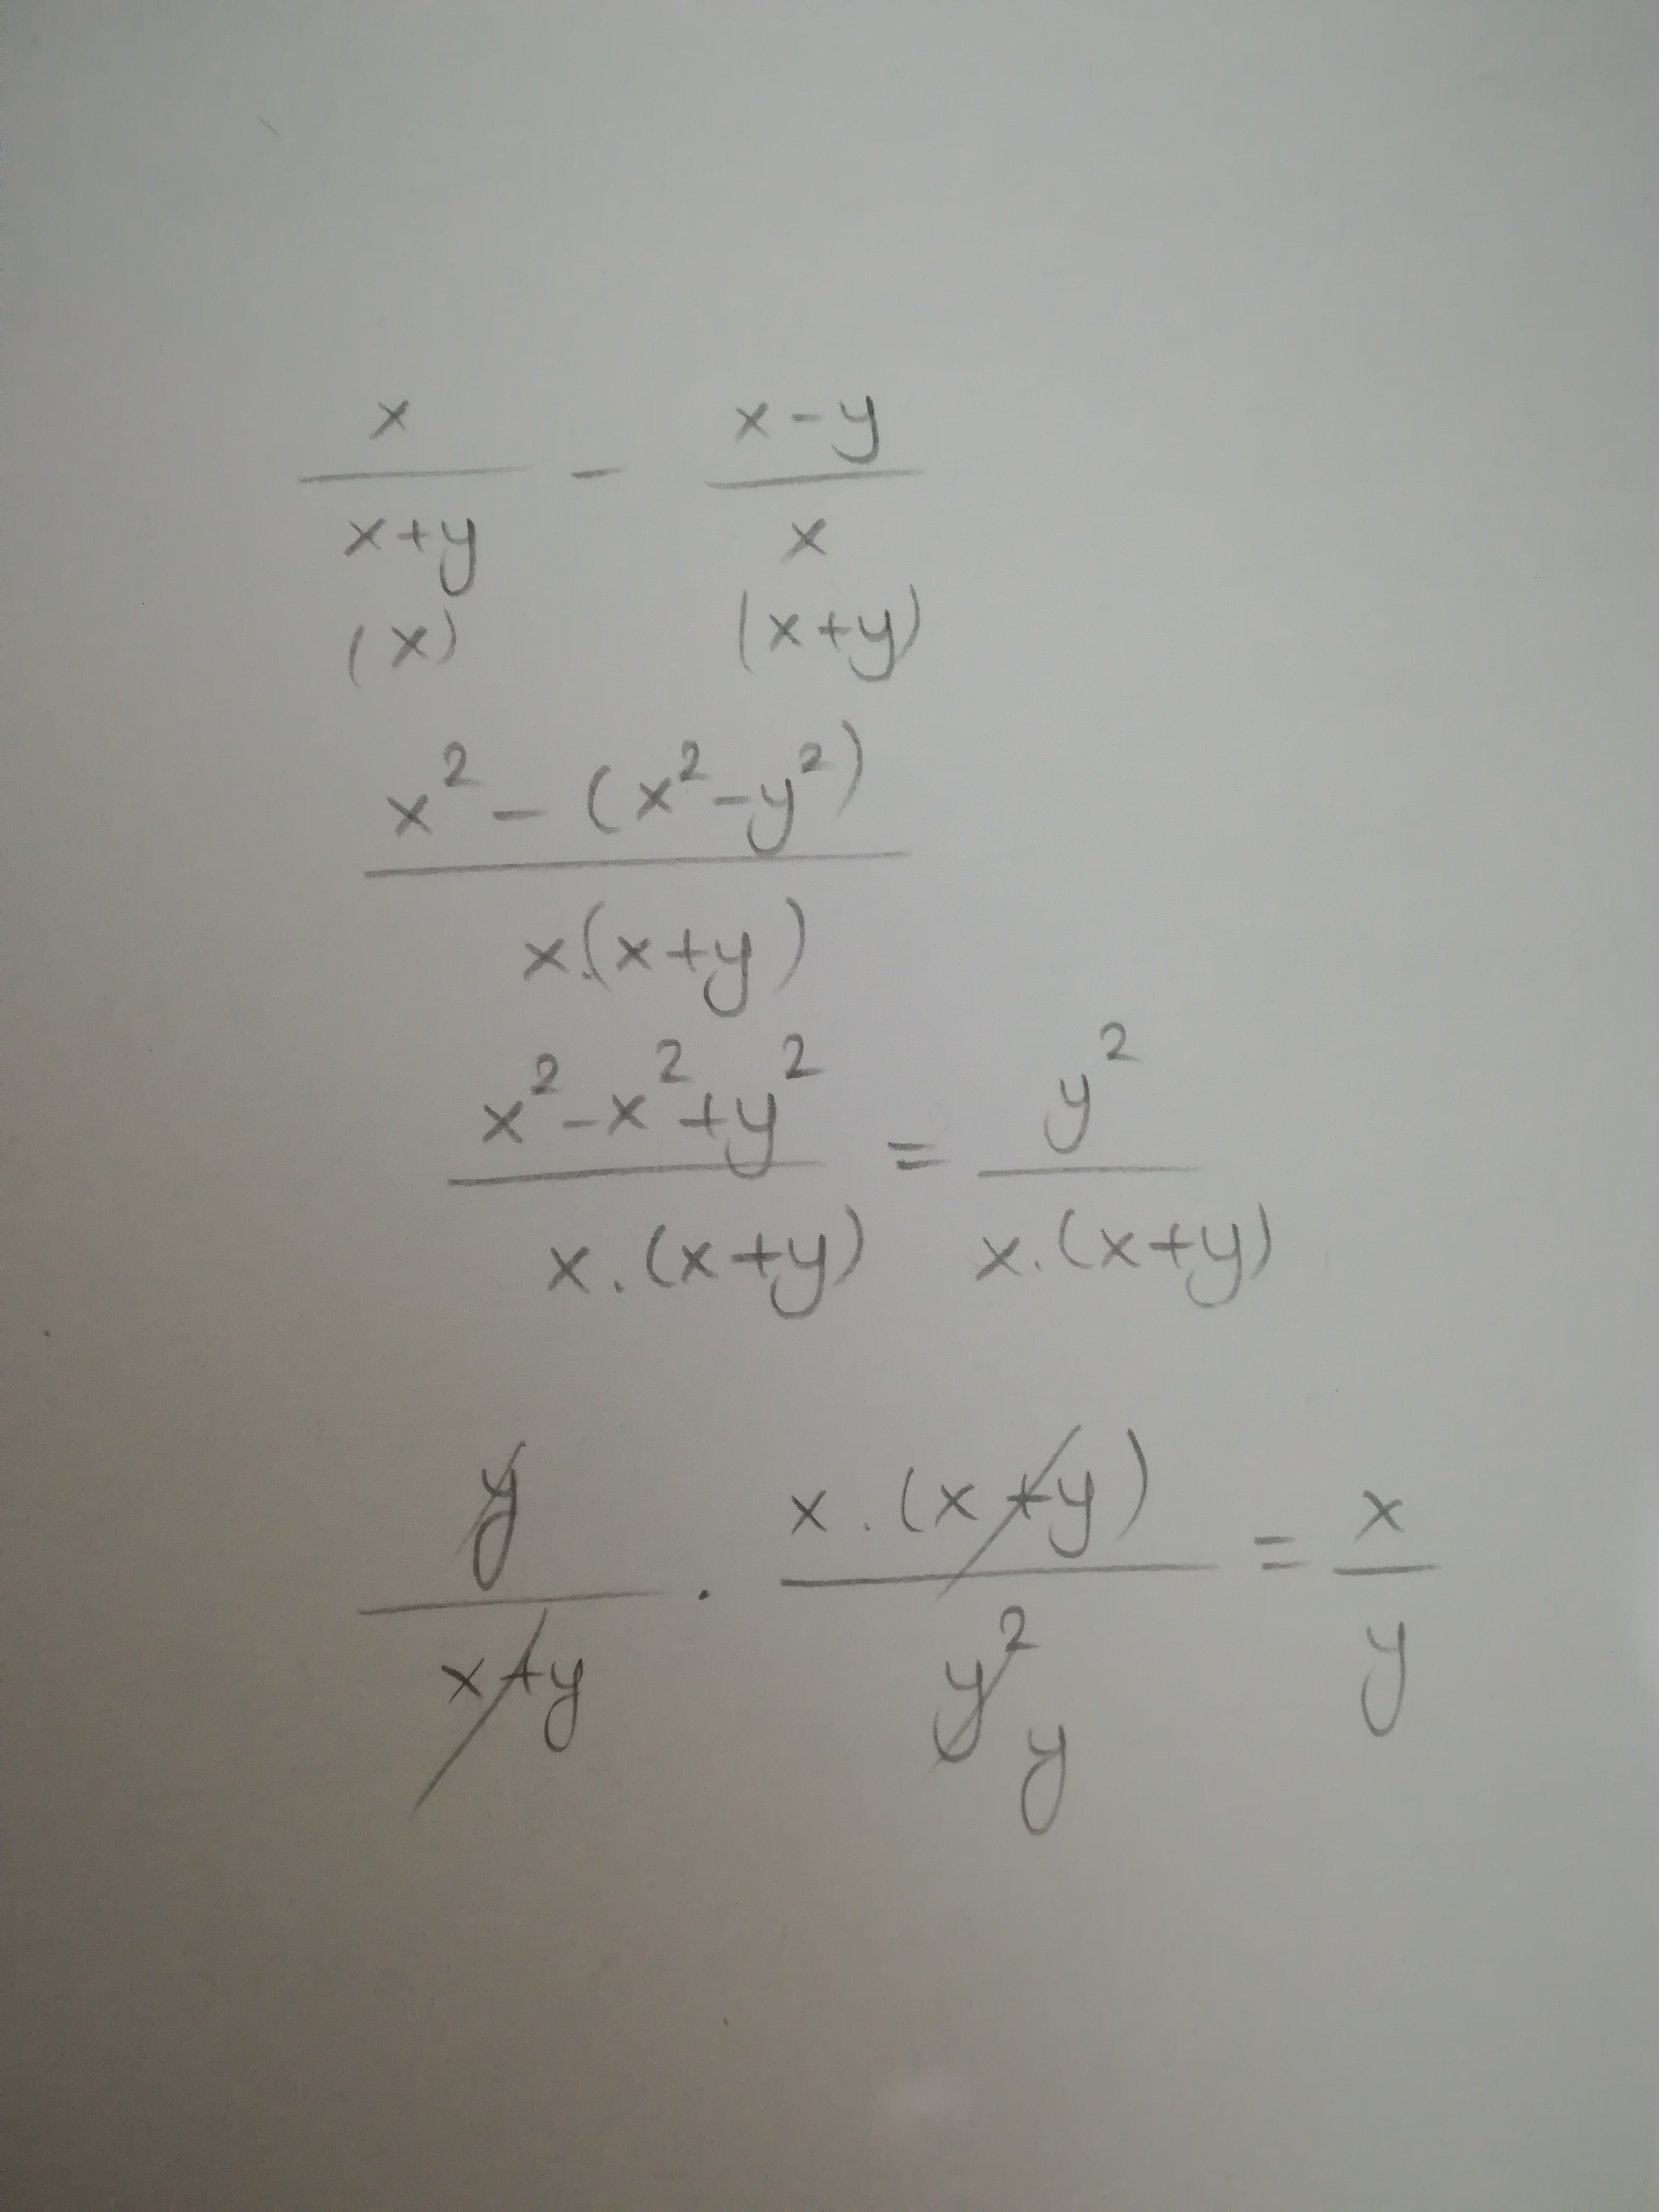 x/(x+y) - (x-y)/x
(x) (x+y)
(x² - (x²-y²))/(x.(x+y))
(x²-x²+y²)/(x.(x+y)) = y²/(x.(x+y))
y/(x+y) . (x.(x+y))/y² = x/y
y